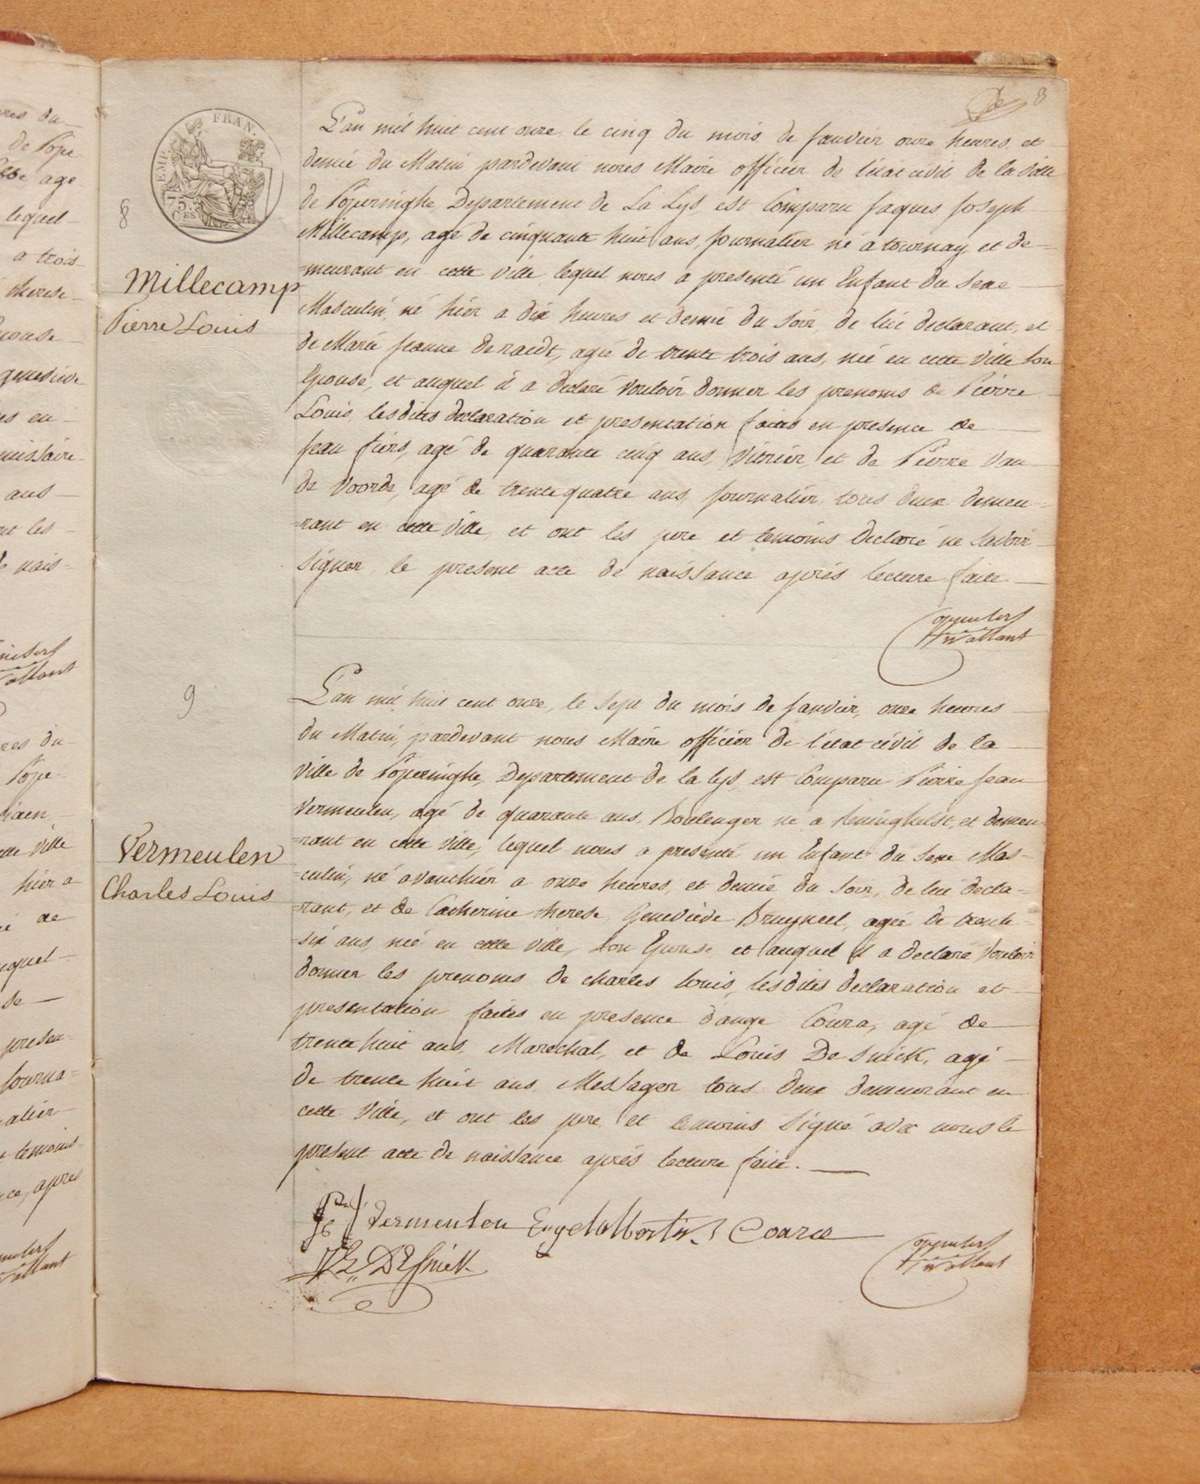 8
EMP. FRAN.
75
8
Millecamp
Pierre Louis
L'an mil huit cent onze le cinq du mois de janvier onze heures et
demie du Matin pardevant nous Maire officier de l'état civil de la Ville
de Poperinghe Departement de La Lys est Comparu jaques joseph
Millecamp, agé de cinquante huit ans, journalier né a tournay et de-
meurant en cette ville lequel nous a presenté un Enfant du sexe
Masculin, né hier a dix heures et demie du Soir, de lui declarant, et
de Marie jeanne Denaedt, agée de trente trois ans, née en cette ville Son
Epouse, et auquel il a declaré vouloir donner les prenoms de Pierre
Louis, lesdites declaration et presentation faites en presence de
jean fiers, agé de quarante cinq ans, vitrier, et de Pierre Van-
de Voorde, agé de trente quatre ans, journalier, tous deux demeu-
-rant en cette ville, et ont les pere et temoins declaré ne Savoir
Signer le present acte de naissance après lecture faite.
9
Vermeulen
Charles Louis
L'an mil huit cent onze, le Sept du mois de janvier, onze heures
du Matin, pardevant nous Maire officier de l'état civil de la
Ville de Poperinghe, Departement de la lys, est Comparu Pierre jean
Vermeulen, agé de quarante ans, Boulenger né a Reninghelst, et demeu
-rant en cette ville, lequel nous a presenté un Enfant du sexe Mas-
-culin, né avanthier a onze heures, et demie du Soir, de lui decla-
-rant, et de Catherine therese Geneviede Brueyneel, agée de trente
-six ans, née en cette ville, Son Epouse et auquel il a declaré Vouloir
donner les prenoms de charles louis, lesdites declaration et
presentation faites en presence d'ange Coura, agé de
trente huit ans, Marechal, et de Louis De Snick, agé
de trente huit ans Messager tous deux demeurant en
cette Ville, et ont les pere, et temoins Signé avec nous le
present acte de naissance après lecture faite.
Vermeulen